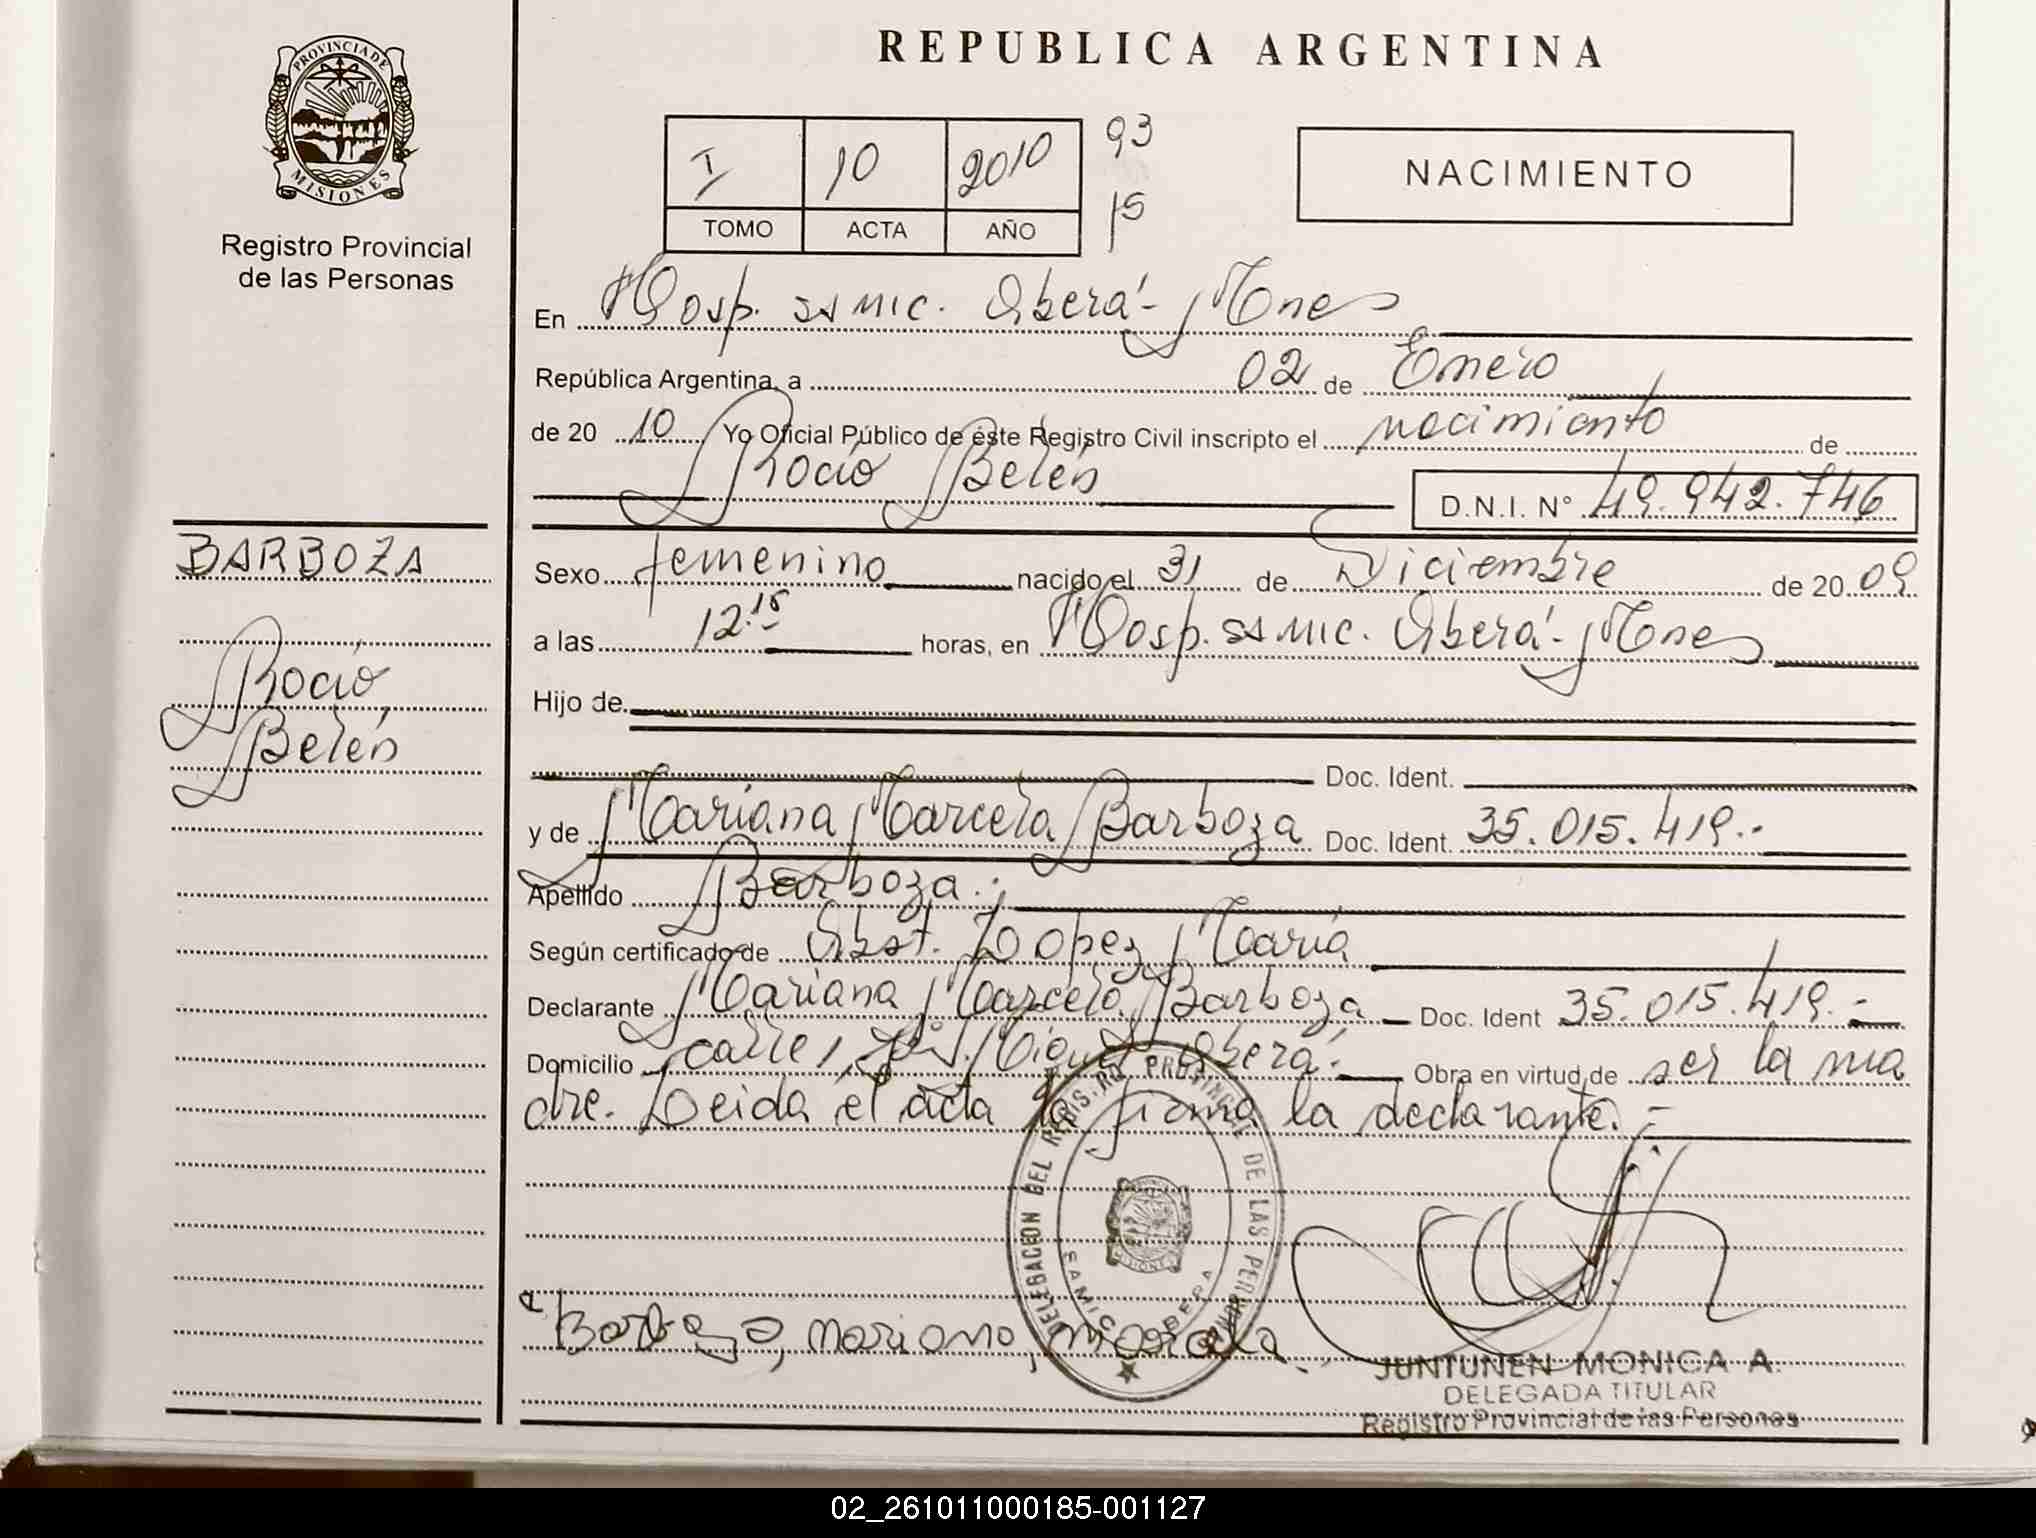 PROVINCIA DE
MISIONES
Registro Provincial
de las Personas
REPUBLICA ARGENTINA
I 10 2010 93
TOMO ACTA AÑO 15
NACIMIENTO
En Hosp. SAMIC. Oberá - Mnes
República Argentina, a 02 de Enero
de 20 10 Yo Oficial Público de éste Registro Civil inscripto el nacimiento de
Rocío Belén D.N.I. N° 49.942.746
BARBOZA
Rocío
Belén
Sexo femenino nacido el 31 de Diciembre de 20 09
a las 12.15 horas, en Hosp. SAMIC. Oberá - Mnes
Hijo de
Doc. Ident.
y de Mariana Marcela Barboza Doc. Ident. 35.015.419.-
Apellido Barboza.-
Según certificado de Obst. Lopez María
Declarante Mariana Marcela Barboza Doc. Ident 35.015.419.-
Domicilio calle, Oberá.- Obra en virtud de ser la ma
dre. Leida el acta la firma la declarante.-
DELEGACION DEL REGISTRO PROVINCIAL DE LAS PERSONAS
SAMIC OBERA
MISIONES
Barboza, mariana, marcela.
JUNTUNEN MONICA A.
DELEGADA TITULAR
Registro Provincial de las Personas
02_261011000185-001127